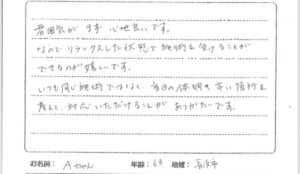 雰囲気がまず心地良いです。
なのでリラックスした状態で施術を受けることが
できるのが嬉しいです。
いつも同じ施術ではなく、当日の体調や辛い箇所を
考えて、対応いただけることがありがたいです。
お名前: Aちゃん 年齢: 63 地域: 長浜市